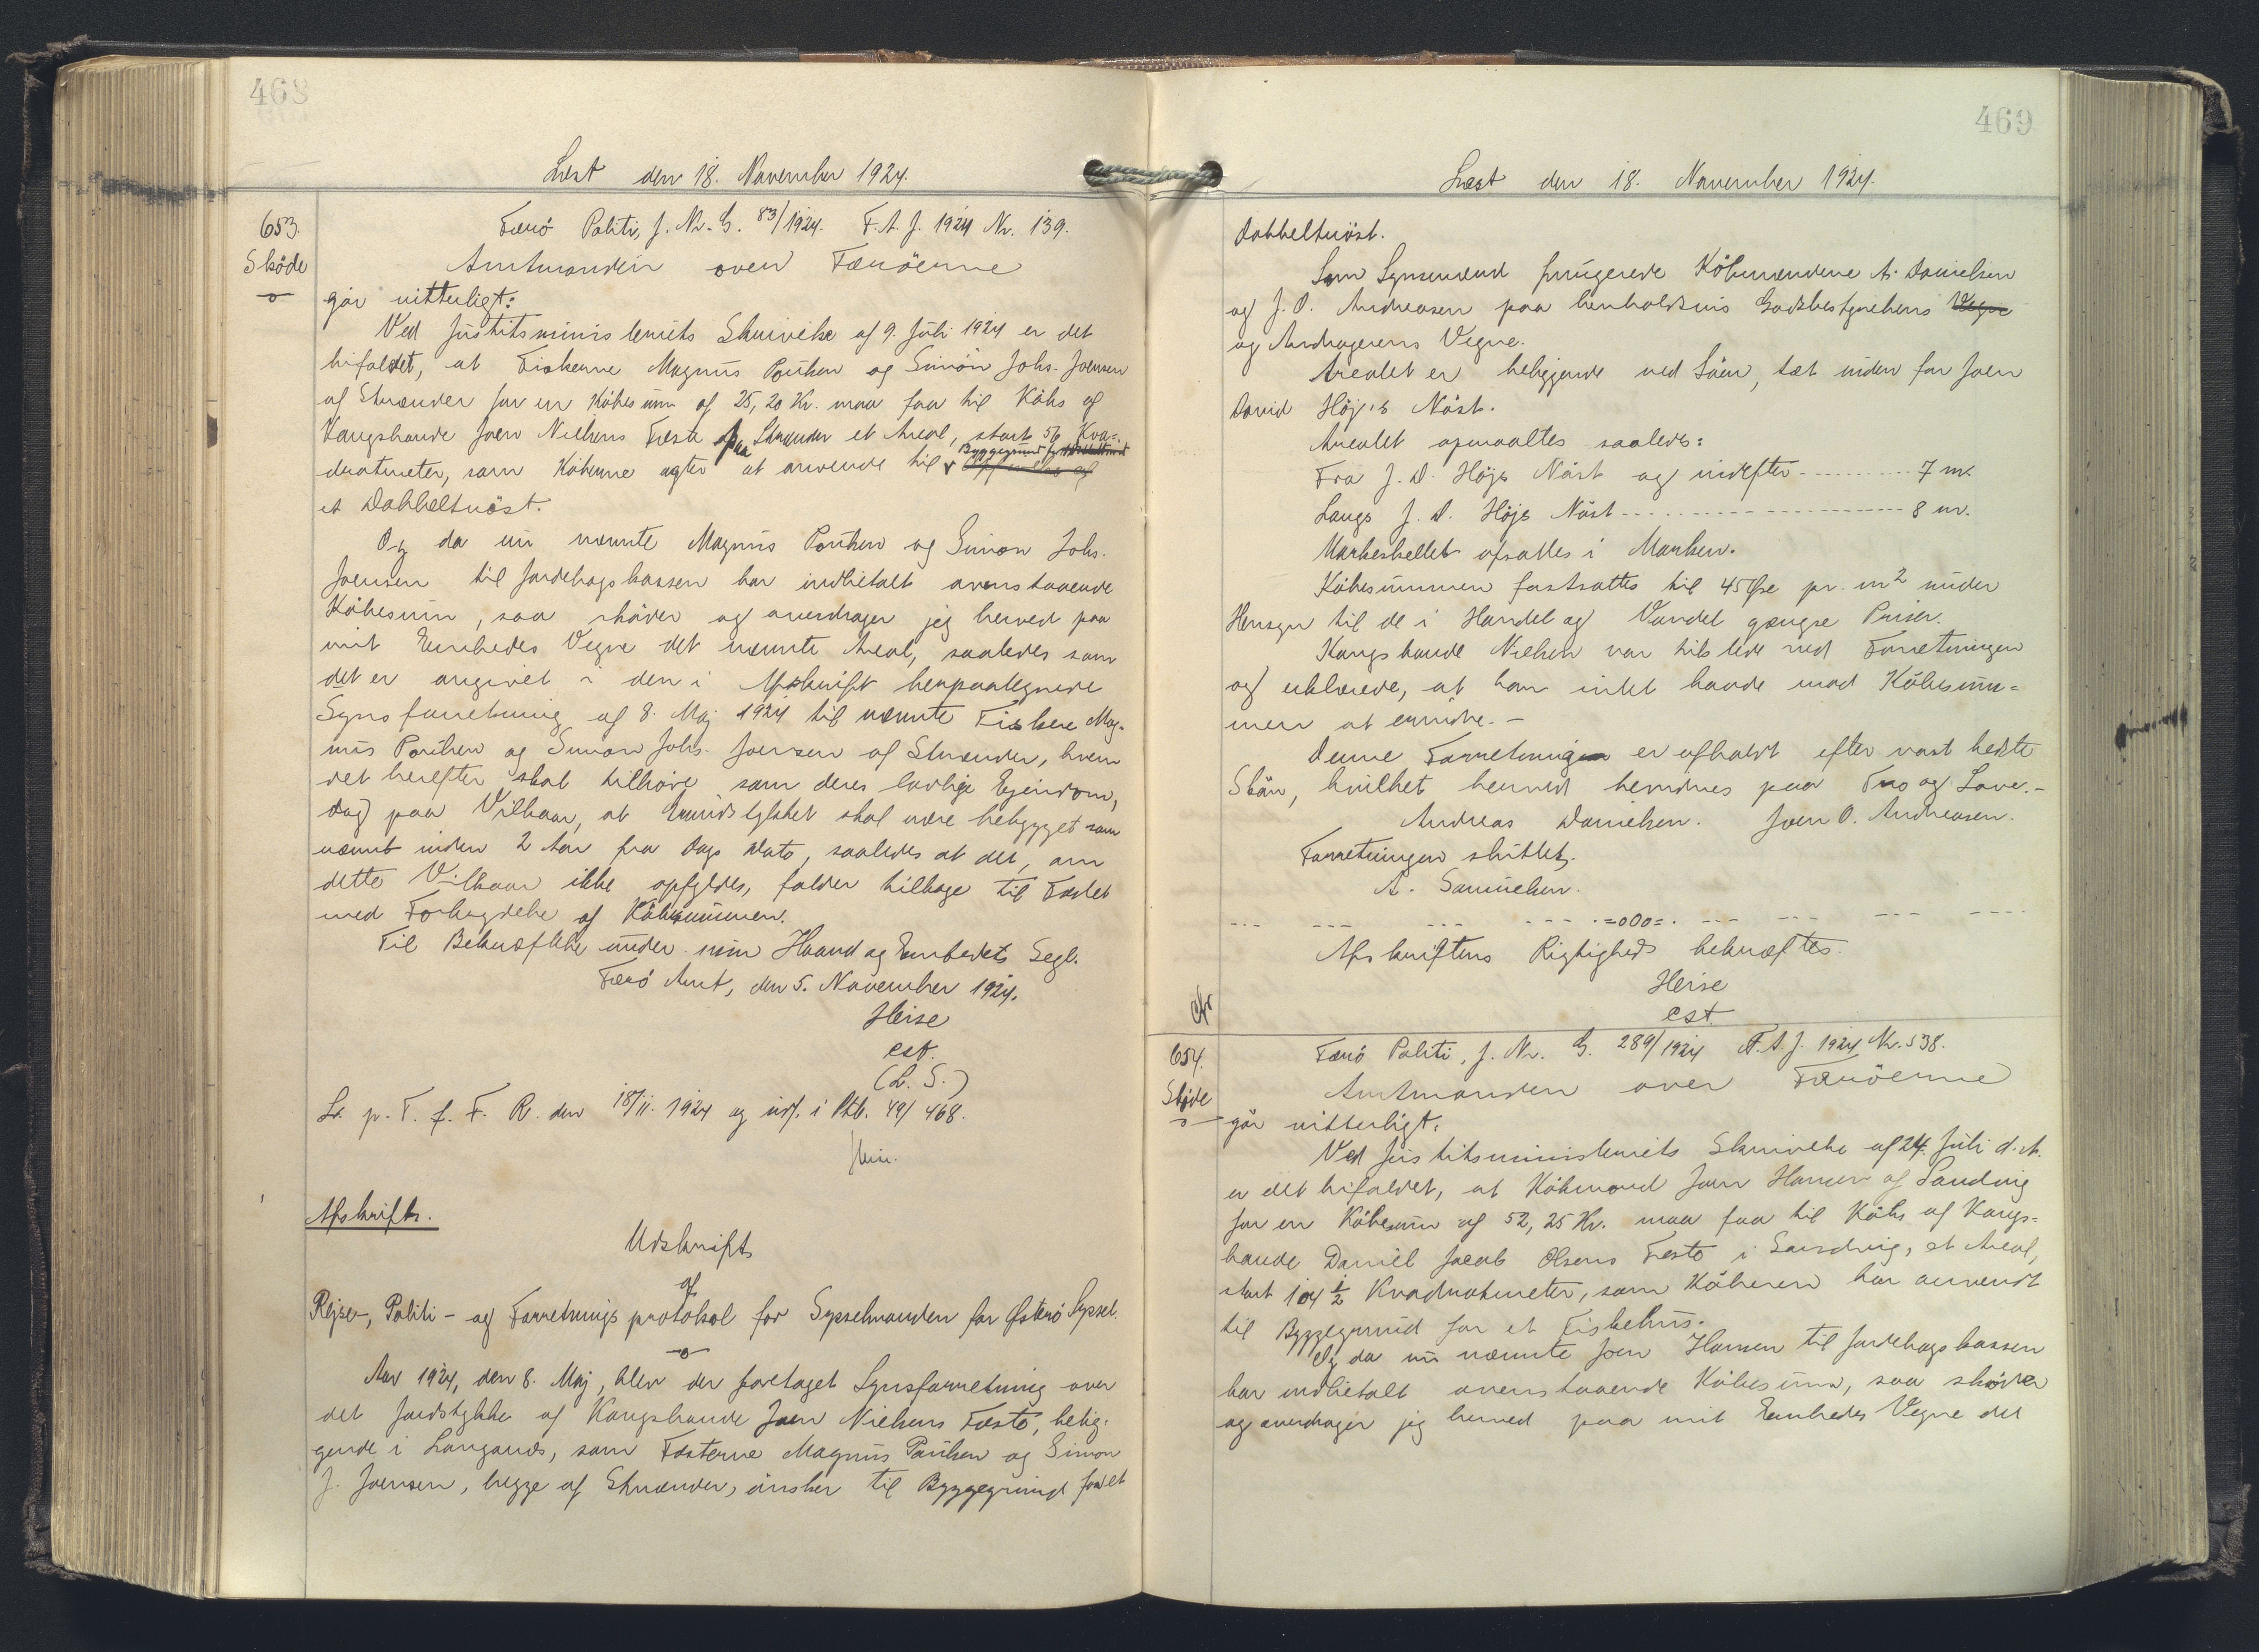 468
Læst den 18. November 1924.
653.
Sköde
Færö Politi, J. Nr. G. 83/1924. F.A.J. 1924 Nr. 139.
Amtmanden over Færöerne
gör vitterligt:
Ved Justitsministeriets Skrivelse af 9. Juli 1924 er det
bifaldet, at Fiskerne Magnus Poulsen og Simon Johs. Joensen
af Strænder for en Købesum af 25,20 Kr. maa faa til Købs af
Kongsbonde Joen Nielsens Fæste paa Strænder et Areal, stort 56 Kva-
dratmeter, som Köberne agter at anvende til Byggegrund for
et Dobbeltnöst.
Og da nu nævnte Magnus Poulsen og Simon Johs.
Joensen til Jordebogskassen har indbetalt ovenstaaende
Købesum, saa sköder og overdrager jeg herved paa
mit Embedes Vegne det nævnte Areal, saaledes som
det er angivet i den i Afskrift herpaategnede
Synsforretning af 8. Maj 1924 til nævnte Fiskere Mag-
nus Poulsen og Simon Johs. Joensen af Strænder, hvem
det herefter skal tilhöre som deres lovlige Ejendom,
dog paa Vilkaar, at Grundstykket skal være bebygget som
nævnt inden 2 Aar fra Dags Dato, saaledes at det, om
dette Vilkaar ikke opfyldes, falder tilbage til Fæstet
med Fortabelse af Købesummen.
Til Bekræftelse under min Haand og Embedets Segl.
Færö Amt, den 5. November 1924.
Heise
cst.
(L. S.)
L. p. T. f. F. R. den 18/11. 1924 og indf. i Ptb. 49/468.
Heise.
Afskrift.
Udskrift
af
Rejse-, Politi- og Forretningsprotokol for Sysselmanden for Østerö Syssel.
Aar 1924, den 8. Maj, blev der foretaget Synsforretning over
det Jordstykke af Kongsbonde Joen Nielsens Fæste, belig-
gende i Langanes, som Fæsterne Magnus Poulsen og Simon
J. Joensen, begge af Strænder, ønsker til Byggegrund for et
469
Læst den 18. November 1924.
Dobbeltnöst.
Som Synsmænd fungerede Köbmændene A. Danielsen
og J. O. Andreasen paa henholdsvis Godsbestyrelsens Vegne
og Andragerens Vegne.
Arealet er beliggende ved Söen, tæt inden for Joen
David Höjs Nöst.
Arealet opmaaltes saaledes:
Fra J. D. Höjs Nöst og indefter 7 m.
Langs J. D. Höjs Nöst 8 m.
Markeskellet afsattes i Marken.
Købesummen fastsattes til 45 Øre pr. m2 under
Hensyn til de i Handel og Vandel gængse Priser.
Kongsbonde Nielsen var tilstede ved Forretningen
og erklærede, at han intet havde mod Købesum-
men at erindre. -
Denne Forretning er afholdt efter vort bedste
Skön, hvilket herved bevidnes paa Tro og Love. -
Andreas Danielsen. Joen O. Andreasen.
Forretningen sluttet.
A. Samuelsen.
-=oOo=-
Afskriftens Rigtighed bekræftes.
Heise
cst.
654.
Sköde
Færö Politi, J. Nr. G. 289/1924 F.A.J. 1924 Nr. 538.
Amtmanden over Færöerne
gör vitterligt:
Ved Justitsministeriets Skrivelse af 24. Juli d. A.
er det bifaldet, at Köbmand Joen Hansen af Sandvig
for en Købesum af 52,25 Kr. maa faa til Købs af Kongs-
bonde Daniel Jacob Olsens Fæste i Sandvig, et Areal,
stort 104 1/2 Kvadratmeter, som Köberen har anvendt
til Byggegrund for et Fiskehus.
Og da nu nævnte Joen Hansen til Jordebogskassen
har indbetalt ovenstaaende Købesum, saa sköder
og overdrager jeg herved paa mit Embedes Vegne det